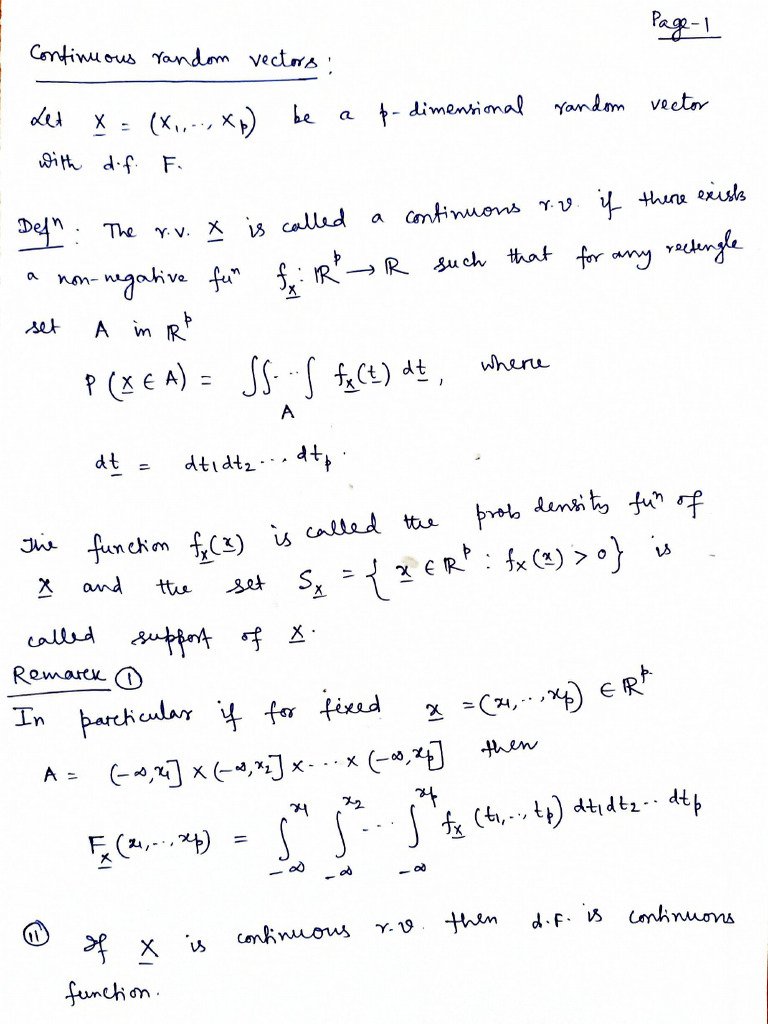 Page-1
Continuous random vectors:
Let X̲ = (X₁,..., Xₚ) be a p-dimensional random vector
with d.f. F.
Defⁿ: The r.v. X̲ is called a continuous r.v. if there exists
a non-negative fuⁿ f_X̲ : ℝᵖ → ℝ such that for any rectengle
set A in ℝᵖ
P (X̲ ∈ A) = ∫∫...∫_A f_X̲(t̲) dt̲, where
dt̲ = dt₁dt₂...dtₚ.
The function f_X̲(x̲) is called the prob density fuⁿ of
X̲ and the set S_X̲ = { x̲ ∈ ℝᵖ : f_X(x̲) > 0 } is
called support of X̲.
Remark ①
In particular if for fixed x̲ = (x₁,..., xₚ) ∈ ℝᵖ
A = (-∞,x₁] × (-∞,x₂] × ... × (-∞,xₚ] then
F_X̲(x₁,..., xₚ) = ∫_{-∞}^{x₁} ∫_{-∞}^{x₂} ... ∫_{-∞}^{xₚ} f_X̲ (t₁,..., tₚ) dt₁dt₂..dtₚ
ⓘⓘ If X̲ is continuous r.v. then d.f. is continuous
function.